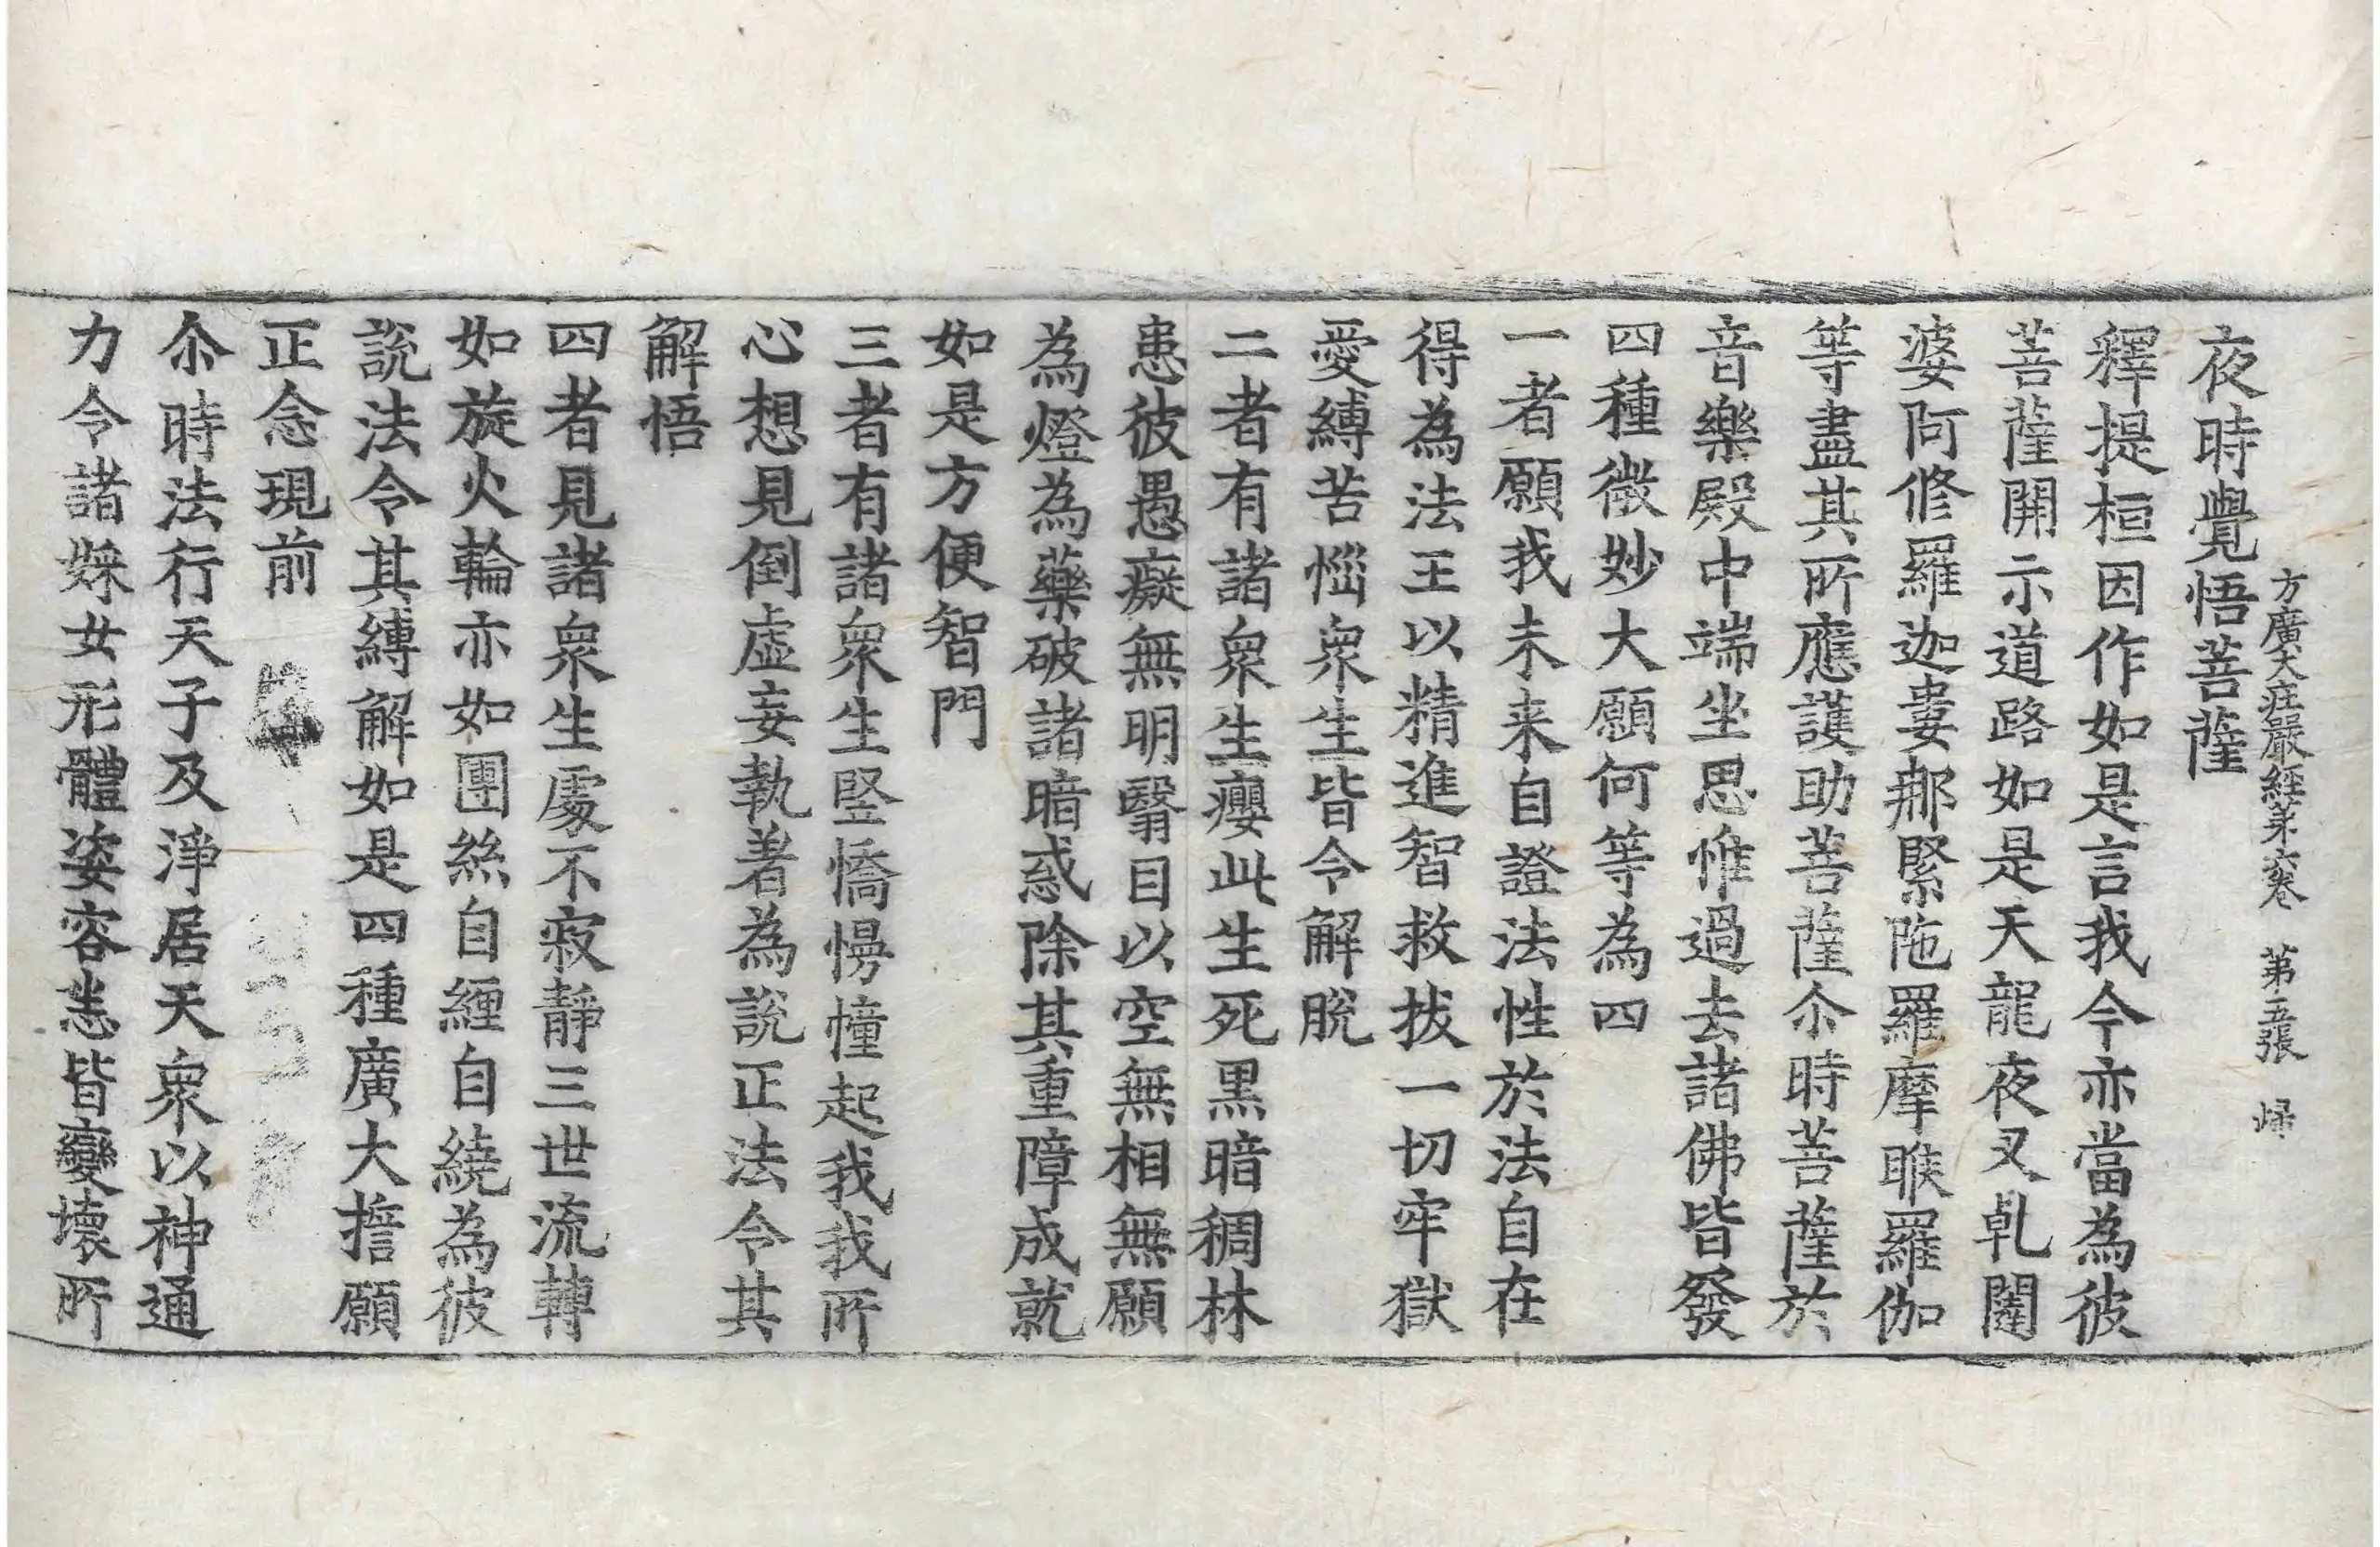 方廣大庄嚴經苐六卷 第五張 歸
夜時覺悟菩薩
釋提桓因作如是言我今亦當為彼
菩薩開示道路如是天龍夜叉乹闥
婆阿修羅迦婁那緊陁羅摩睺羅伽
等盡其所應護助菩薩尒時菩薩於
音樂殿中端坐思惟過去諸佛皆發
四種微妙大願何等為四
一者願我未来自證法性於法自在
得為法王以精進智救拔一切牢獄
愛縛苦惱衆生皆令解脫
二者有諸衆生癭此生死黒暗稠林
患彼愚癡無明翳目以空無相無願
為燈為藥破諸暗惑除其重障成就
如是方便智門
三者有諸衆生竪憍慢幢起我我所
心想見倒虛妄執著為說正法令其
解悟
四者見諸衆生處不寂靜三世流轉
如旋火輪亦如團絲自纏自繞為彼
說法令其縛解如是四種廣大擔願
正念現前
尒時法行天子及淨居天衆以神通
力令諸婇女形體姿容恙皆變壞所